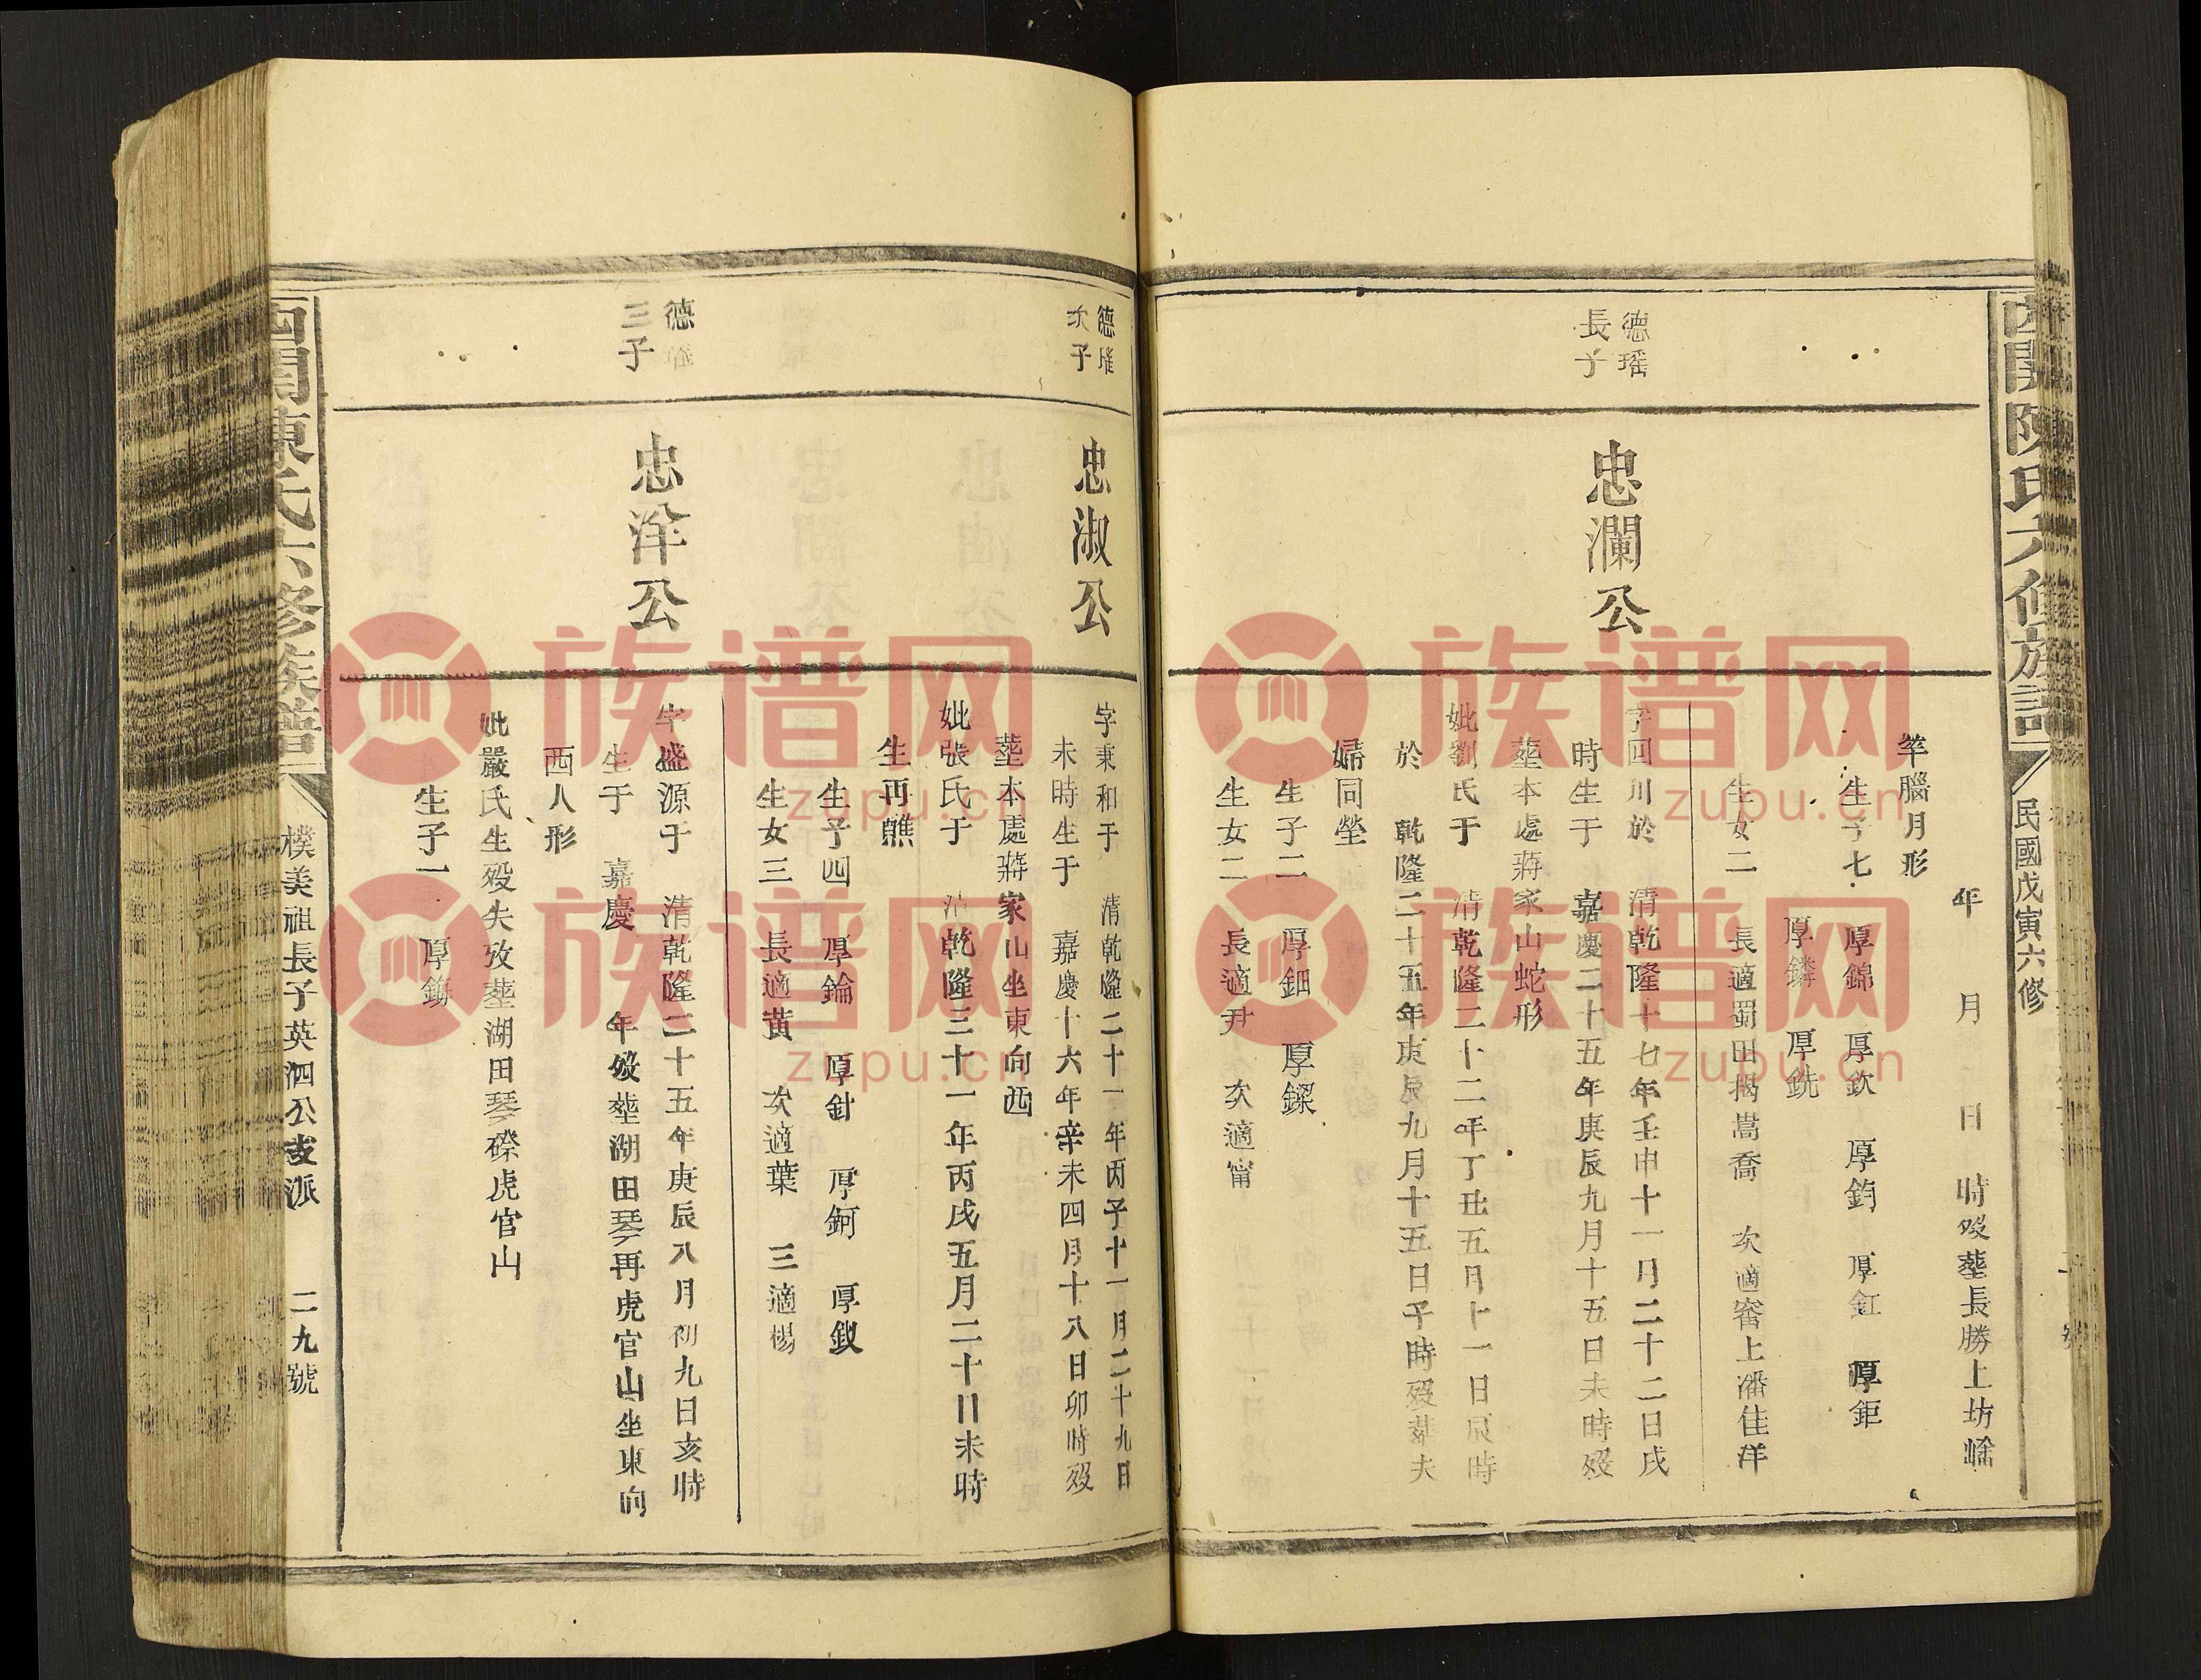 西關陳氏六修族譜
民國戊寅六修
年 月 日 時歿塟長勝上坊
腦月形
生子七 厚錦 厚欽 厚鈞 厚釭 厚鉅
厚鏻 厚銑
生女二 長適蜀田揭嵩喬 次適甯上潘佳洋
德瑶
長子
忠瀾公
字四川於 清乾隆十七年壬申十一月二十二日戌
時生于 嘉慶二十五年庚辰九月十五日未時歿
塟本處蔣家山蛇形
妣劉氏于 清乾隆二十二年丁丑五月十一日辰時
於 乾隆二十五年庚辰九月十五日午時歿塟夫
婦同塋
生子二 厚鈿 厚鏍
生女二 長適尹 次適甯
德瑤
次子
忠淑公
字秉和于 清乾隆二十一年丙子十一月二十九日
未時生于 嘉慶十六年辛未四月十八日卯時歿
塟本處蔣家山坐東向西
妣張氏于 清乾隆三十一年丙戌五月二十日未時
生再醮
生子四 厚錀 厚針 厚鈳 厚釵
生女三 長適黃 次適葉 三適楊
德瑤
三子
忠洋公
字盛源于 清乾隆二十五年庚辰八月初九日亥時
生于 嘉慶 年歿塟湖田琴再虎官山坐東向
西人形
妣嚴氏生歿失攷塟湖田琴磜虎官山
生子一 厚鎊
西關陳氏六修族譜
樸美祖長子英泗公支派 二九號
族谱网
zupu.cn
族谱网
zupu.cn
族谱网
zupu.cn
族谱网
zupu.cn